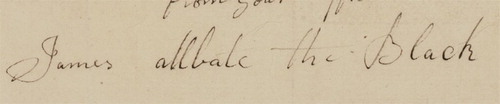 from your
James allbale the Black